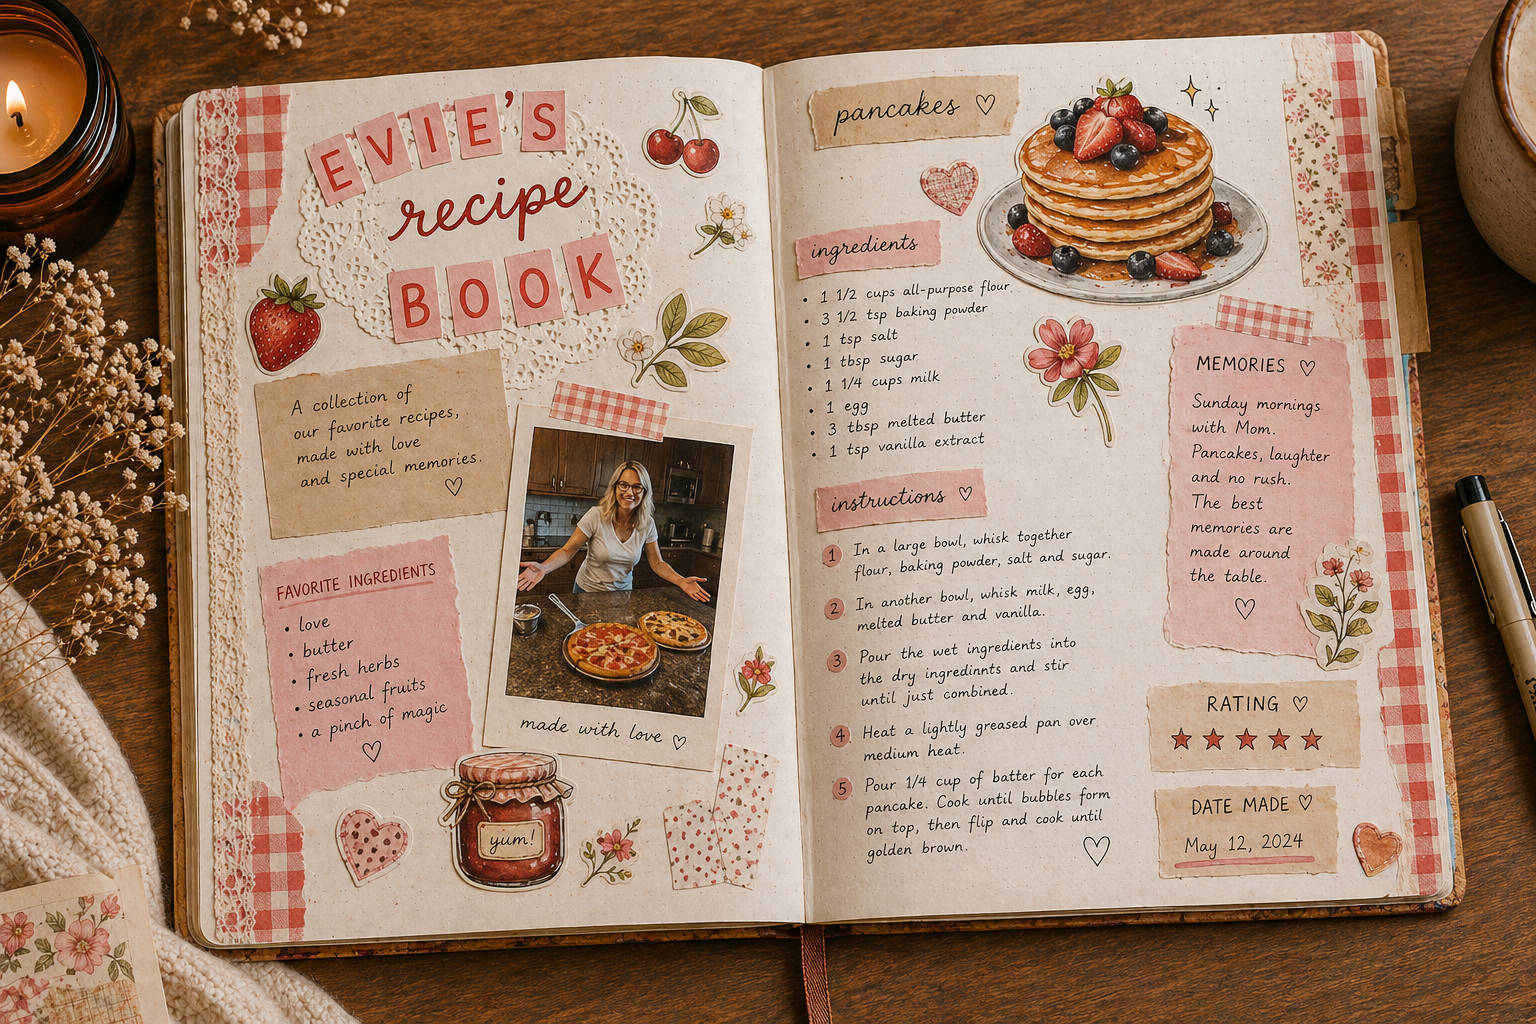 EVIE'S
recipe
BOOK
A collection of
our favorite recipes,
made with love
and special memories.
FAVORITE INGREDIENTS
• love
• butter
• fresh herbs
• seasonal fruits
• a pinch of magic
made with love
yum!
pancakes
ingredients
• 1 1/2 cups all-purpose flour
• 3 1/2 tsp baking powder
• 1 tsp salt
• 1 tbsp sugar
• 1 1/4 cups milk
• 1 egg
• 3 tbsp melted butter
• 1 tsp vanilla extract
instructions
1 In a large bowl, whisk together
flour, baking powder, salt and sugar.
2 In another bowl, whisk milk, egg,
melted butter and vanilla.
3 Pour the wet ingredients into
the dry ingredinnts and stir
until just combined.
4 Heat a lightly greased pan over
medium heat.
5 Pour 1/4 cup of batter for each
pancake. Cook until bubbles form
on top, then flip and cook until
golden brown.
MEMORIES
Sunday mornings
with Mom.
Pancakes, laughter
and no rush.
The best
memories are
made around
the table.
RATING
DATE MADE
May 12, 2024